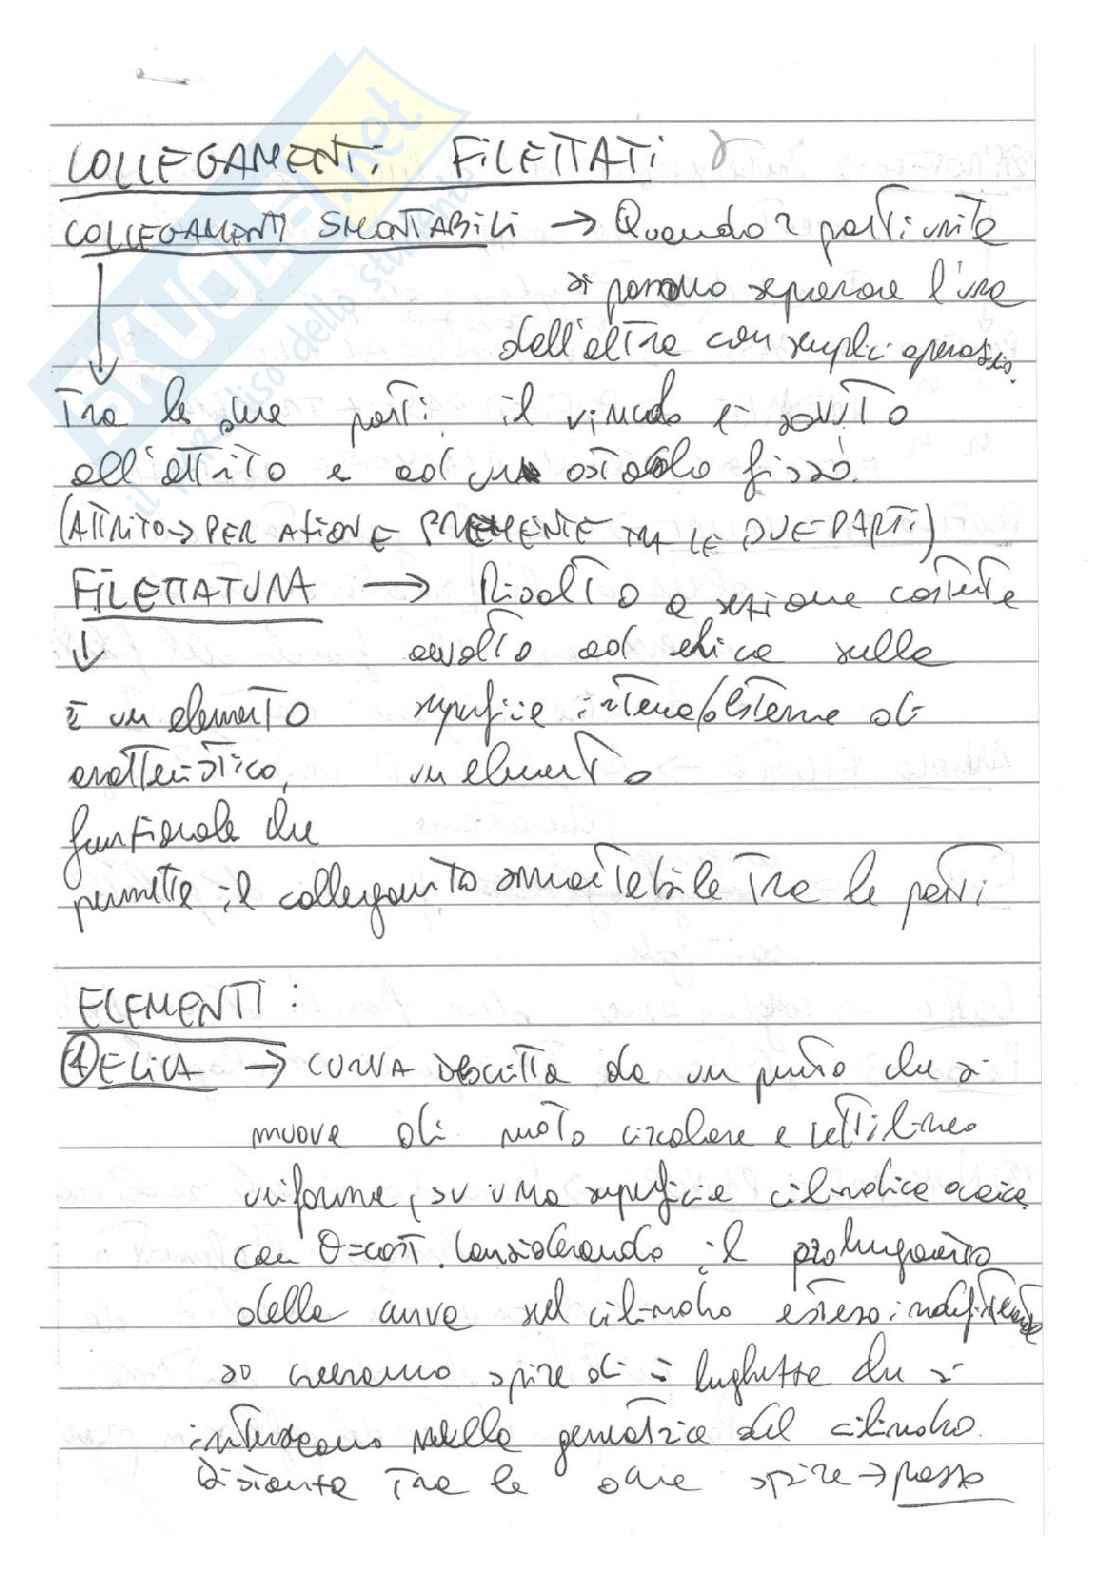 COLLEGAMENTI FILETTATI
COLLEGAMENTI SMONTABILI → Quando 2 parti unite
si possono separare l'una
dall'altra con semplici operaz.
Tra le due parti il vincolo è dovuto
all'attrito e ad un ostacolo fisso.
(ATTRITO → PER AZIONE PREMENTE TRA LE DUE PARTI)
FILETTATURA → Risalto a sezione costante
avvolto ad elica sulla
È un elemento superficie interna/esterna di
caratteristico, un elemento
funzionale che
permette il collegamento smontabile tra le parti
ELEMENTI:
① ELICA → CURVA descritta da un punto che si
muove di moto circolare e rettilineo
uniforme, su una superficie cilindrica
con θ=cost. Considerando il prolungamento
della curva sul cilindro esteso indefinitamente
si creeranno spire di = lunghezza che si
intersecano nella generatrice del cilindro.
Distanza tra le due spire → passo
skuola.net
il paradiso dello studente